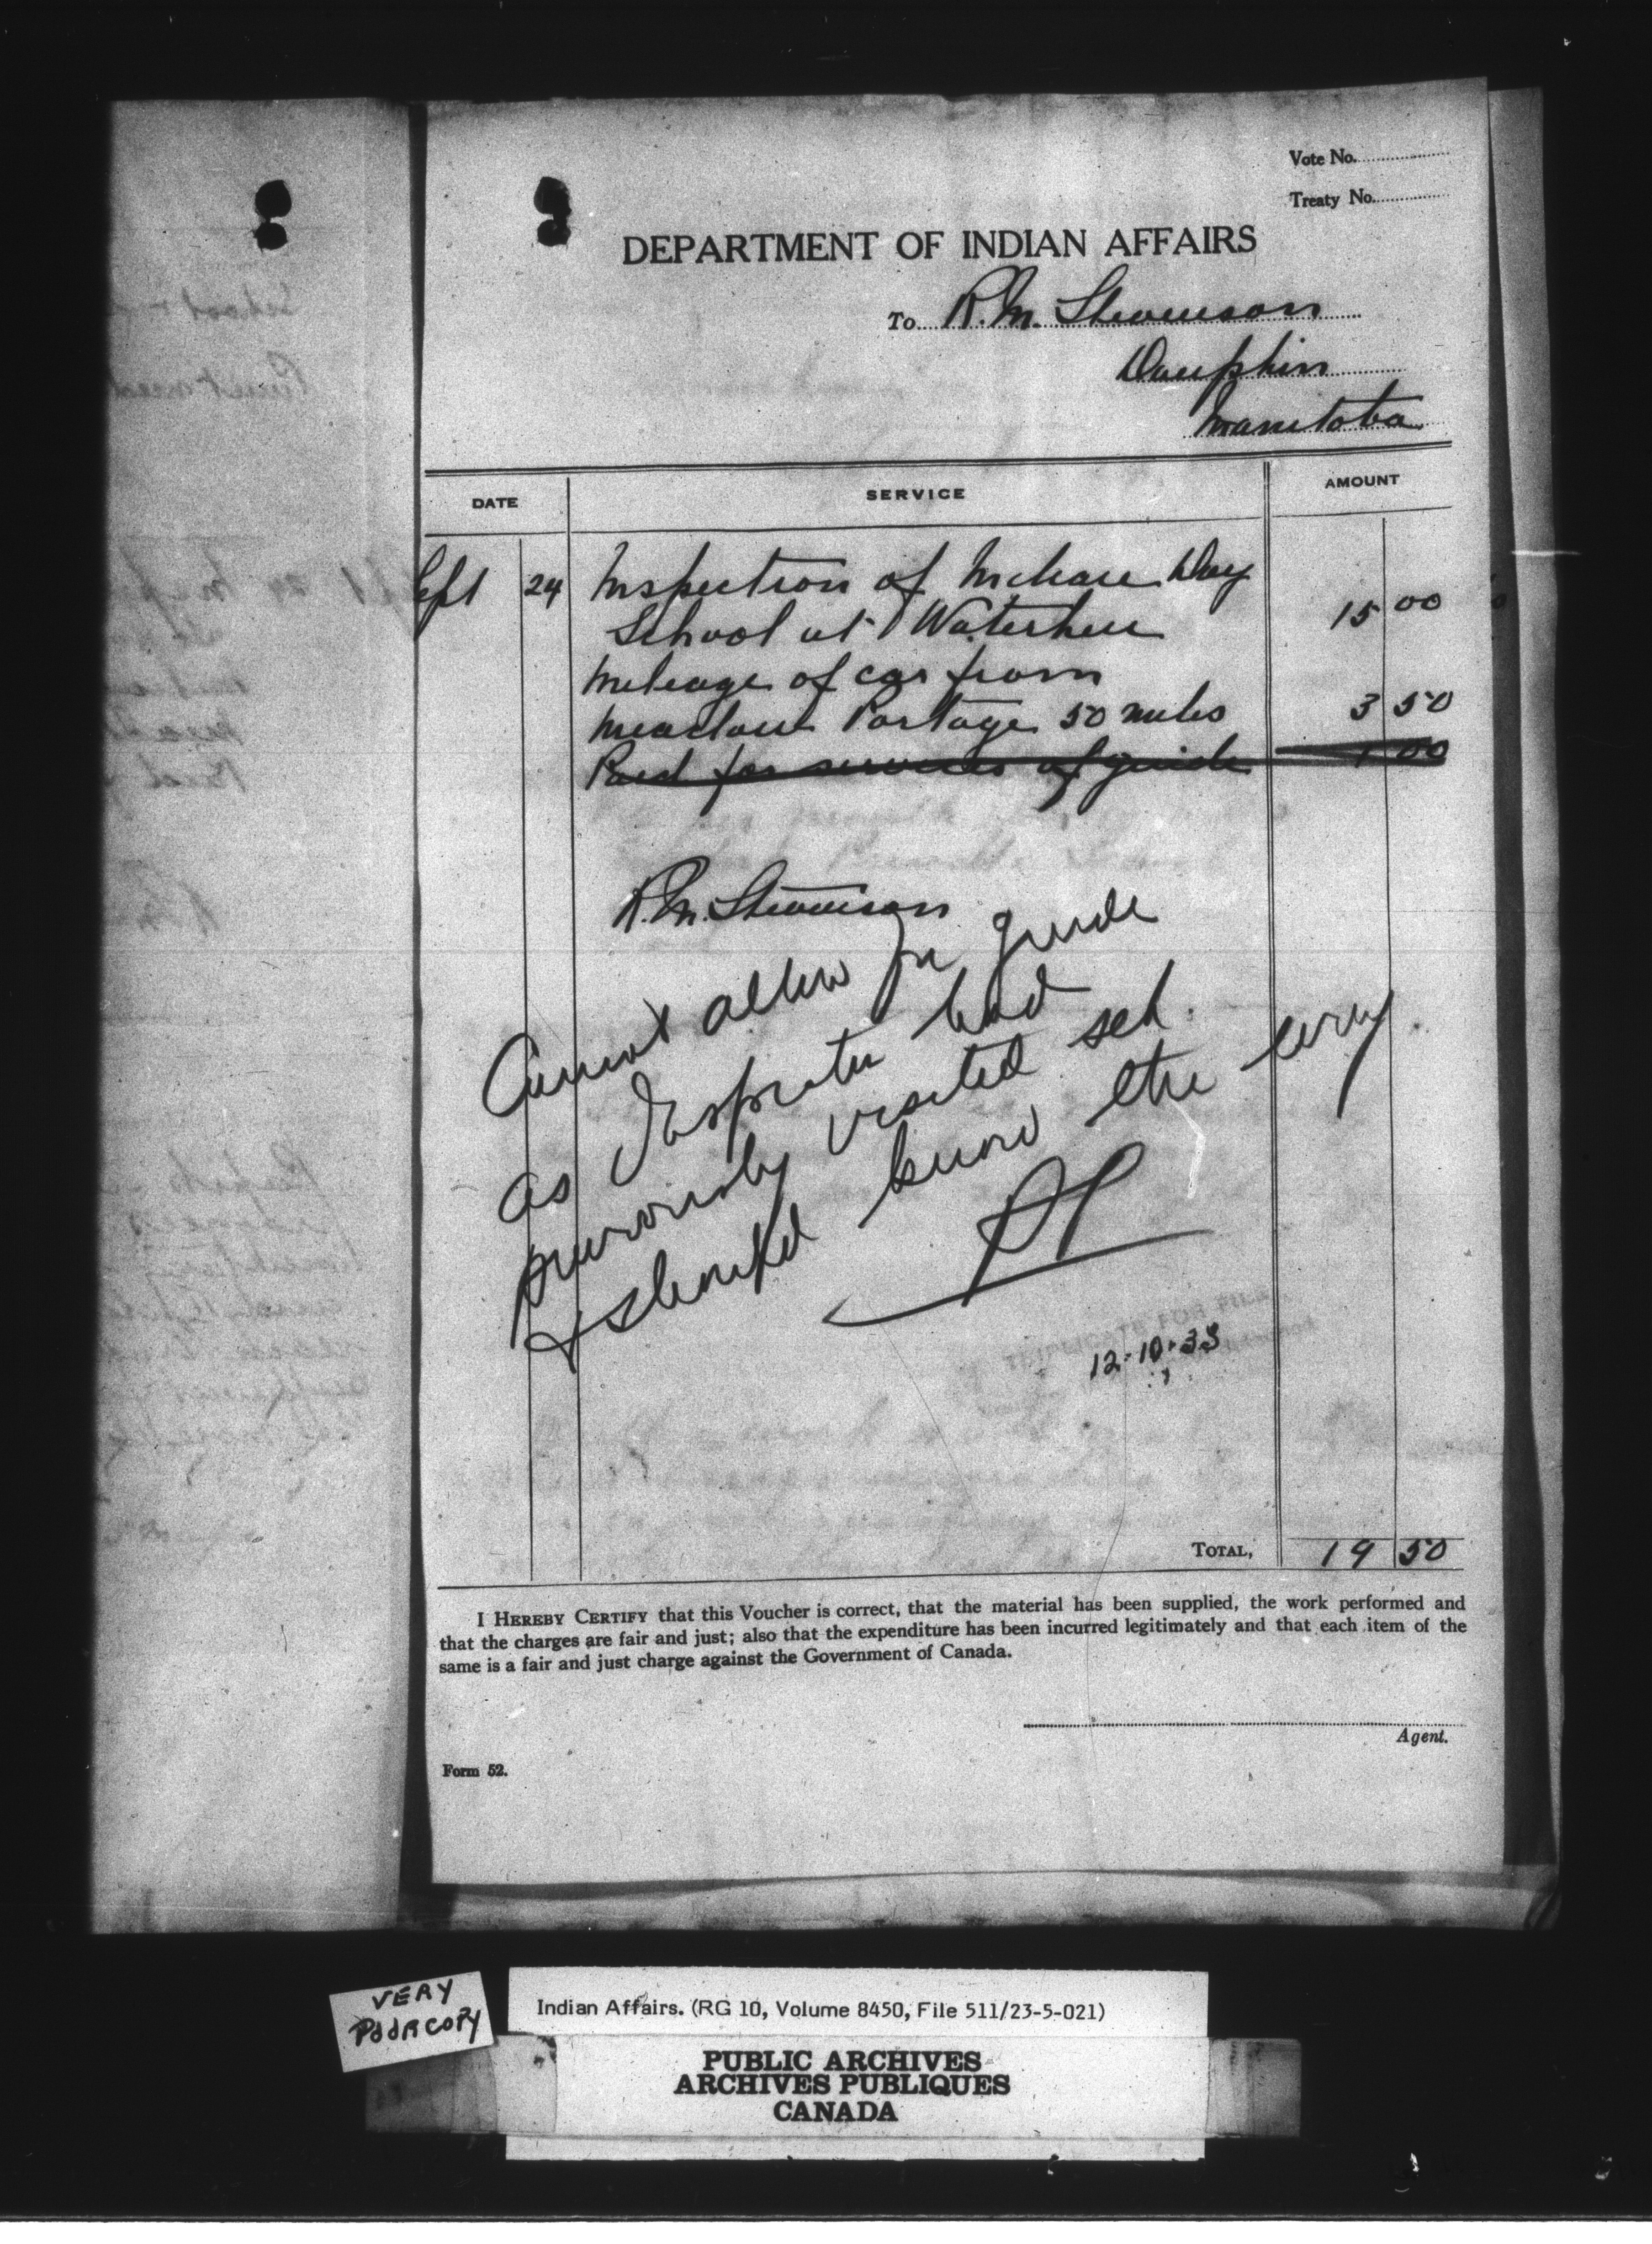 Vote No.
Treaty No.
DEPARTMENT OF INDIAN AFFAIRS
To R. M. Stevenson
Dauphin
Manitoba
DATE SERVICE AMOUNT
Sept 24 Inspection of McLean Day
School at Waterhen 15 00
Mileage of car from
Meadow Portage 50 miles 3 50
Paid for services of guide 1 00
R. M. Stevenson
Cannot allow for guide
as Inspector had
previously visited sch.
& should know the way.
12-10-33
TRIPLICATE FOR FILE
TOTAL, 19 50
I HEREBY CERTIFY that this Voucher is correct, that the material has been supplied, the work performed and
that the charges are fair and just; also that the expenditure has been incurred legitimately and that each item of the
same is a fair and just charge against the Government of Canada.
Agent.
Form 52.
VERY
POOR COPY
Indian Affairs. (RG 10, Volume 8450, File 511/23-5-021)
PUBLIC ARCHIVES
ARCHIVES PUBLIQUES
CANADA